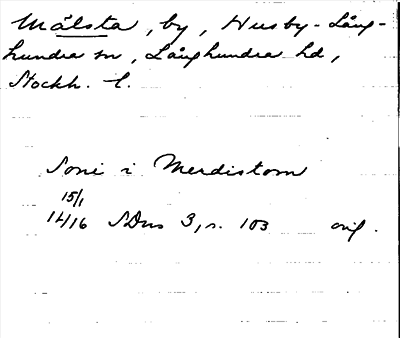 Målsta, by, Husby-Lång-
hundra sn, Långhundra hd,
Stockh. l.
Joni i Merdistom
15/1
1416 SDns 3, s. 103 orig.